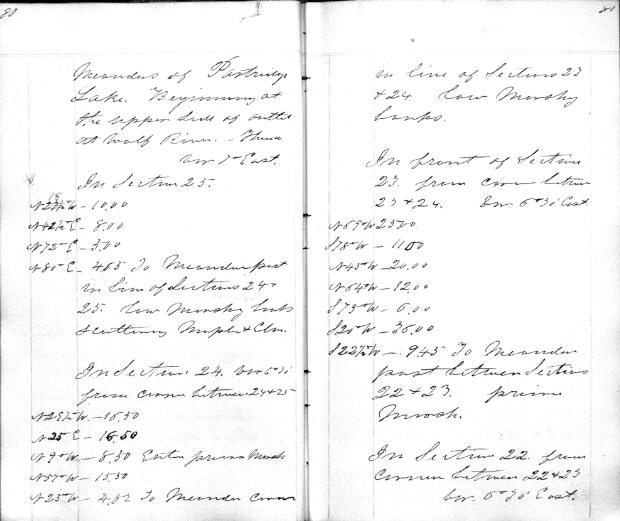 80
Meanders of Partridge
Lake. Beginning at
the upper side of outlet
at Wolf River. Thence
var 7° East.
In Section 25.
N 23½ W – 10.00
N 42½ E – 8.00
N 72° E – 3.00
N 80° E – 4.65 To Meander post
in line of Sections 24 +
25. low Marshy banks
scattering Maple & Elm.
In Section 24. var 6° 30'
from corner between 24 + 25
N 29½ W – 16.50
N 25 E – 16.50
N 9° W – 8.50 Enter prairie Marsh
N 57° W – 15.50
N 25° W – 4.82 To Meander corner
81
in line of Sections 23
+ 24. low Marshy
banks.
In front of Section
23. from corner between
23 + 24. 6° 30' East
N 69° W 25.00
S 78° W – 11.00
N 45° W – 20.00
N 64° W – 12.00
S 73° W – 6.00
S 20° W – 36.00
S 22½° W – 9.45 To Meander
post between Sections
22 + 23. prairie
Marsh.
In Section 22 from
corner between 22 + 23
var. 6° 30' East.